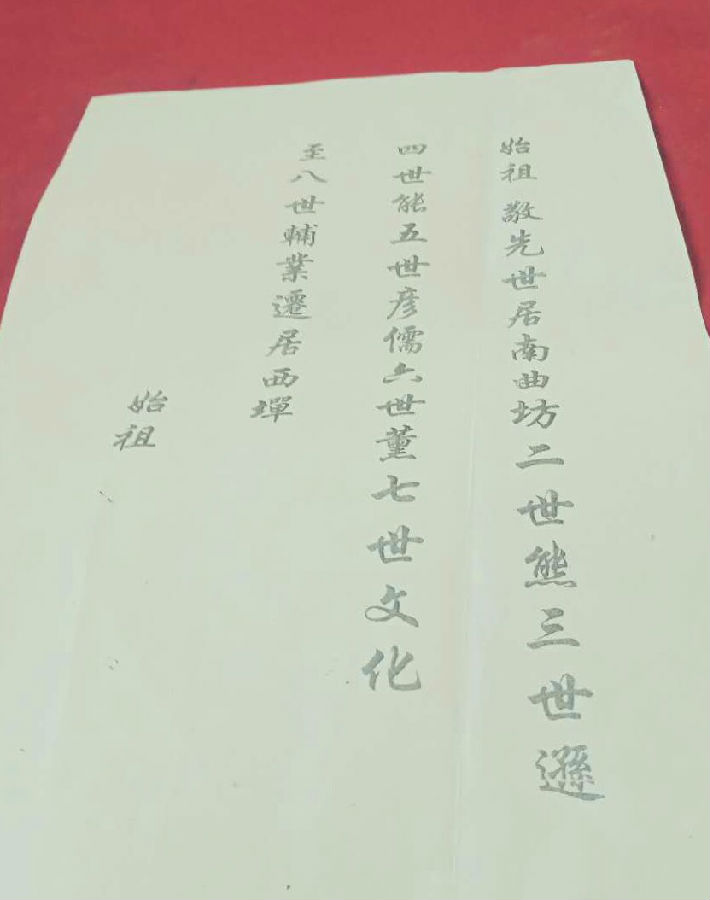 始祖敬先世居南曲坊二世熊三世遜
四世能五世彦儒六世薰七世文化
至八世輔業遷居西墠
始祖